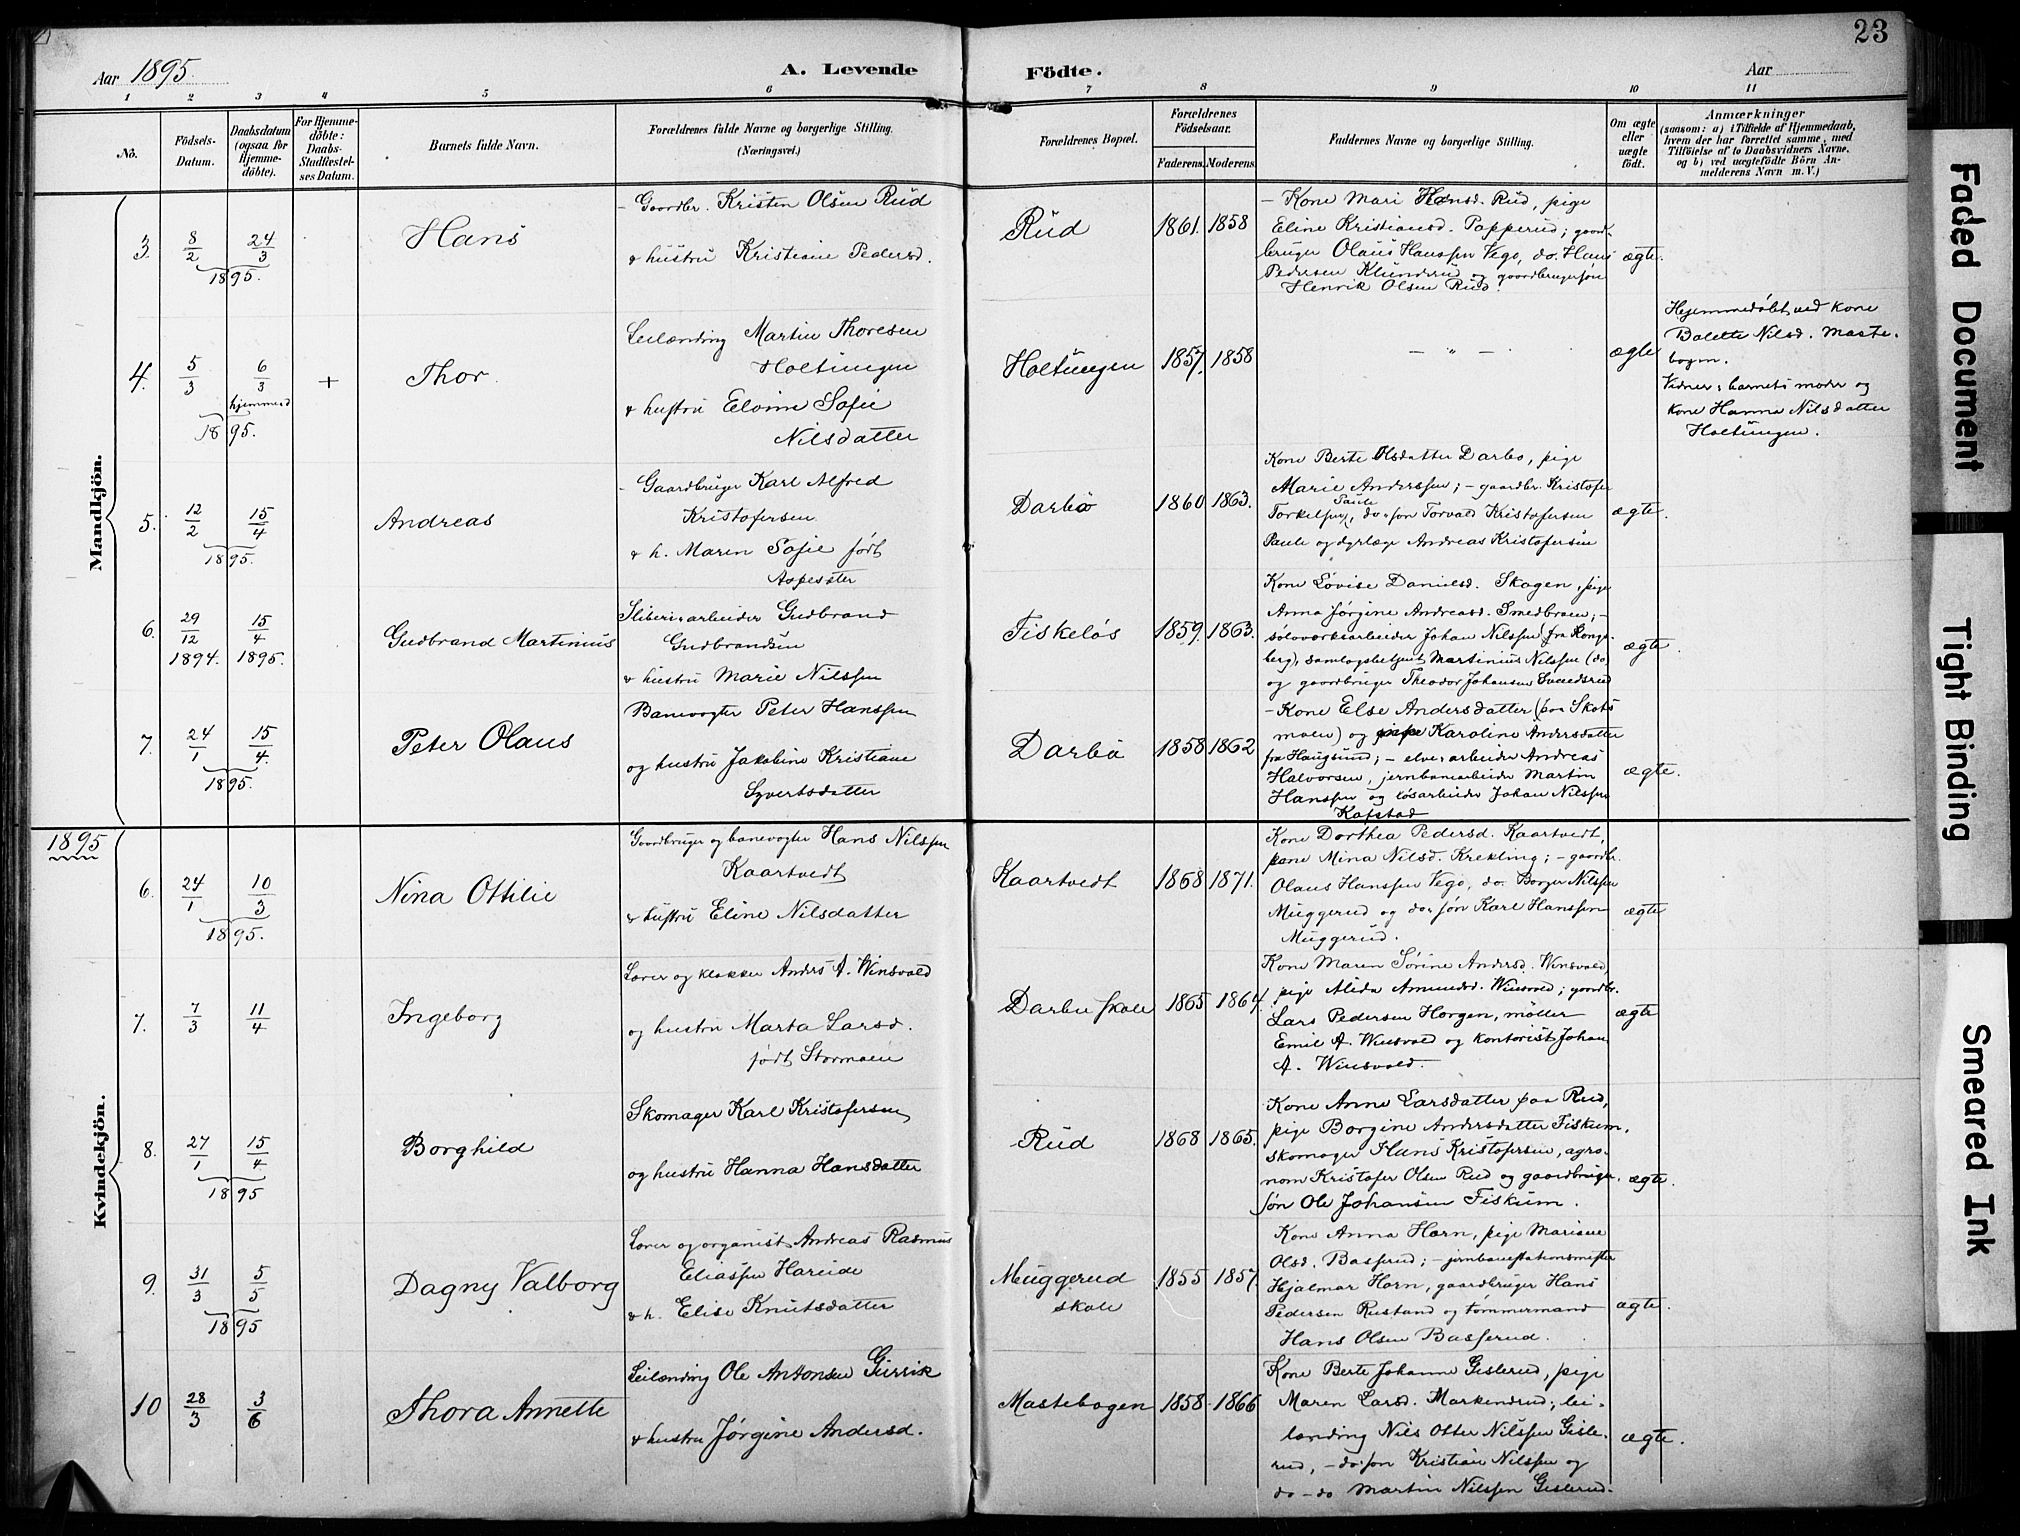 23
Aar 1895.
A. Levende Födte.
Aar
1 2 3 4 5 6 7 8 9 10 11
No.
Födsels-Datum.
Daabsdatum (ogsaa for Hjemmedöbte).
For Hjemmedöbte: Daabs-Stadfæstelses Datum.
Barnets fulde Navn.
Forældrenes fulde Navne og borgerlige Stilling.
(Næringsvei.)
Forældrenes Bopæl.
Forældrenes Födselsaar.
Faderens. Moderens.
Faddernes Navne og borgerlige Stilling.
Om ægte eller uægte födt.
Anmærkninger
(saasom: a) i Tilfælde af Hjemmedaab, hvem der har forrettet samme, med Tilföielse af to Daabsvidners Navne, og b) ved uægtefödte Börn Anmelderens Navn m. V.)
Mandkjön.
3. 8/2 24/3 1895.
Hans
- Gaardbr. Kristen Olsen Rud
& hustru Kristiane Pedersd.
Rud
1861. 1858
- Kone Mari Hansd. Rud, pige
Eline Kristiansd. Popperud; gaard-
bruger Olaus Hanssen Vego, do. Hans
Pedersen Klunderud og gaardbrugersøn
Henrik Olsen Rud.
ægte.
4. 5/3 6/3 hjemmed 1895. +
Thor.
Leilænding Martin Thoresen
Holtungen
& hustru Elvine Sofie
Nilsdatter
Holtungen
1857. 1858
- " -
ægte
Hjemmedøbt ved kone
Balette Nilsd. Maste-
bogen.
Vidner: barnets moder og
kone Hanna Nilsdatter
Holtungen.
5. 12/2 15/4 1895.
Andreas
- Gaardbruger Karl Alfred
Kristofersen
& h. Maren Sofie født
Aspester
Darbo
1860 1863.
Kone Berte Olsdatter Darbo, pige
Marie Anderssen; - gaardbr. Kristofer
Torkelsen Paule, do. søn Torvald Kristofersen
Paule og dyrlæge Andreas Kristofersen
ægte.
6. 29/12 1894. 15/4 1895.
Gudbrand Martinius
Sliberiarbeider Gudbrand
Gudbrandsen
& hustru Marie Nilssen
Fiskeløs
1859. 1863.
Kone Lovise Danielsd. Skogen, pige
Anna Jørgine Andreasd. Smedbraen; -
sølvværksarbeider Johan Nilssen (fra Kongs-
berg), samlagsbetjent Martinius Nilssen (do)
og gaardbruger Theodor Johansen Svendsrud
ægte.
7. 24/1 15/4. 1895.
Peter Olaus
Banevogter Peter Hanssen
og hustru Jakobine Kristiane
Syvertsdatter
Darbo
1858 1862
- Kone Else Andersdatter (paa Skots
moen) og Karoline Andersdatter
fra Haugsund; - elvearbeider Andreas
Halvorsen, jernbanearbeider Martin
Hanssen og løsarbeider Johan Nilssen
Kafstad
ægte.
1895
Kvindekjön.
6. 24/1 10/3 1895.
Nina Ottilie
Gaardbruger og banevogter Hans Nilssen
Kaartvedt
& hustru Eline Nilsdatter
Kaartvedt
1868 1871.
Kone Dorthea Pedersd. Kaartvedt,
pane Mina Nilsd. Krekling; - gaardbr.
Olaus Hanssen Vego, do. Borger Nilssen
Muggerud og do. søn Karl Hanssen
Muggerud.
ægte
7. 7/3 11/4
Ingeborg
Lærer og klokker Anders A. Winsvold
og hustru Marta Larsd.
født Stormoen
Darbu skole
1865 1864.
Kone Maren Sørine Andersd. Winsvold,
pige Alida Amundsd. Winsvold; gaardbr.
Lars Pedersen Horgen, møller
Emil A. Winsvold og kontorist Johan
A. Winsvold.
ægte
8. 27/1 15/4 1895
Borghild
Skomager Karl Kristofersen
og hustru Hanna Hansdatter
Rud
1868 1865.
Kone Anne Larsdatter paa Rud,
pige Borgine Andersdatter Fiskum,
skomager Hans Kristofersen, agro-
nom Kristofer Olsen Rud og gaardbruger-
søn Ole Johansen Fiskum.
ægte.
9. 31/3 5/5 1895
Dagny Valborg
Lærer og organist Andreas Rasmus
Eliassen Hareide
& h. Elise Knutsdatter
Muggerud
skole
1855 1857.
Kone Anna Horn, pige Mariane
Olsd. Basserud; - jernbanestationsmester
Hjalmar Horn, gaardbruger Hans
Pedersen Rustand og tømmermand
Hans Olsen Basserud.
ægte.
10 28/3 3/6
Thora Annette
Leilænding Ole Antonsen Gursrik
& hustru Jørgine Andersd.
Mastebogen
1858 1866
Kone Berte Johanne Gislerud, pige
Maren Larsd. Markendrud; lei-
lænding Nils Otter Nilssen Gisle-
rud, - do. søn Kristian Nilssen og
do - do Martin Nilssen Gislerud.
ægte.
Faded Document
Tight Binding
Smeared Ink